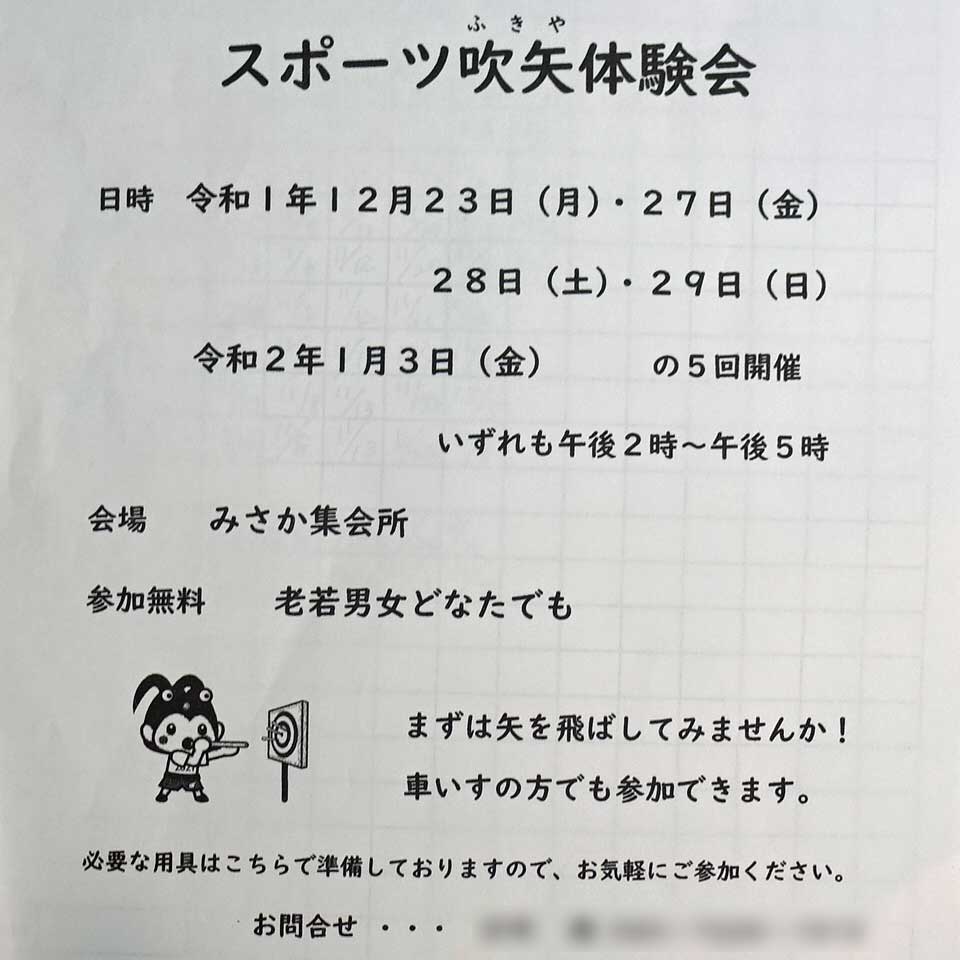 ふきや
スポーツ吹矢体験会
日時 令和1年12月23日（月）・27日（金）
28日（土）・29日（日）
令和2年1月3日（金） の5回開催
いずれも午後2時～午後5時
会場 みさか集会所
参加無料 老若男女どなたでも
まずは矢を飛ばしてみませんか！
車いすの方でも参加できます。
必要な用具はこちらで準備しておりますので、お気軽にご参加ください。
お問合せ ・・・